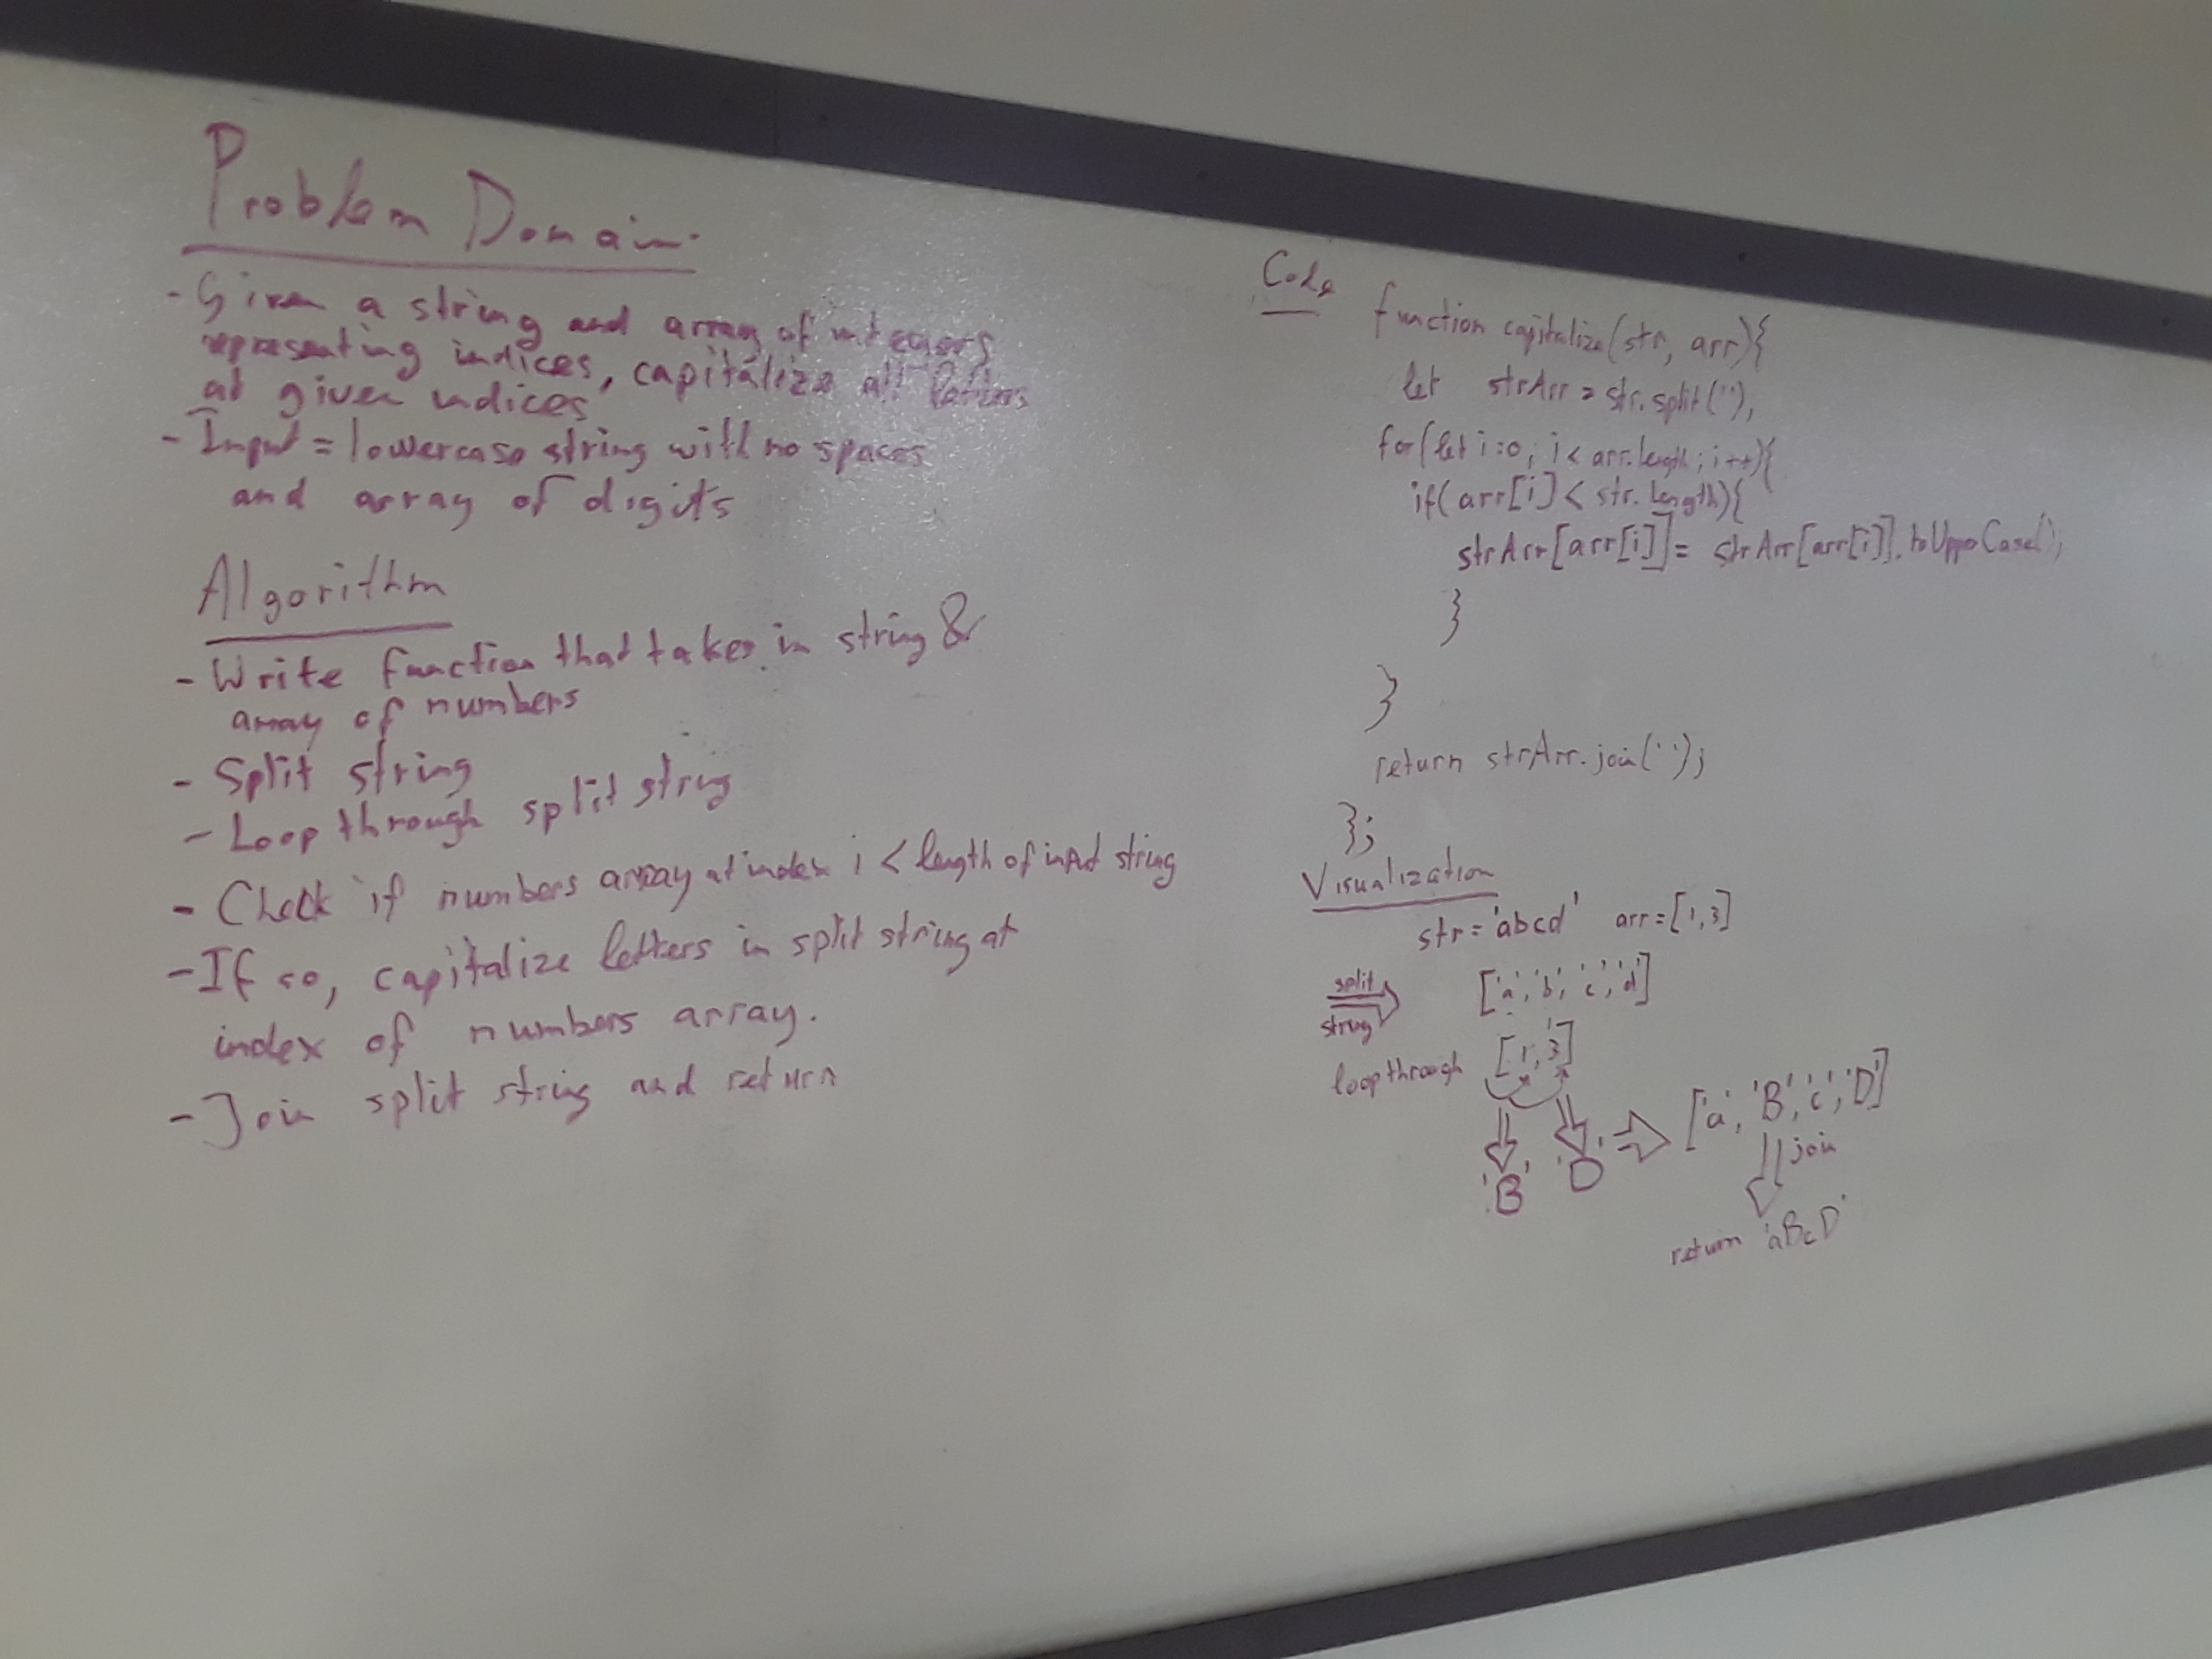 Problem Domain
- Given a string and array of integers
representing indices, capitalize all letters
at given indices
- Input = lowercase string with no spaces
and array of digits
Algorithm
- Write function that takes in string &
array of numbers
- Split string
- Loop through split string
- Check if numbers array at index i < length of input string
- If so, capitalize letters in split string at
index of numbers array.
- Join split string and return
Code
function capitalize(str, arr){
let strArr = str.split('');
for(let i=0; i < arr.length; i++){
if(arr[i] < str.length){
strArr[arr[i]] = strArr[arr[i]].toUpperCase();
}
}
return strArr.join('');
};
Visualization
str = 'abcd' arr = [1,3]
split
string
['a','b','c','d']
loop through [1,3]
'B' 'D'
['a','B','c','D']
join
return 'aBcD'